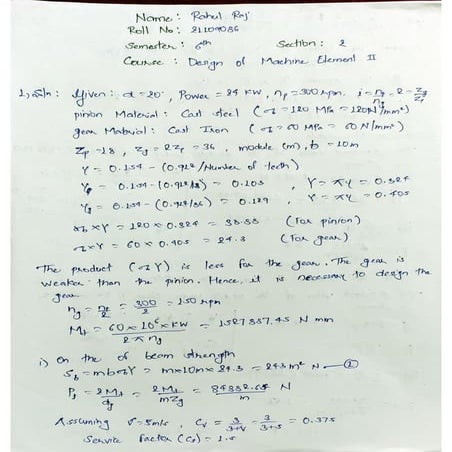 Name: Rahul Raj
Roll No: 21109086
Semester: 6th Section: 2
Course: Design of Machine Element II
Given: α = 20°, Power = 24 kW, np = 300 rpm, i = np/ng = 2 = Zg/Zp
pinion Material: Cast steel (σ = 120 MPa = 120 N/mm²)
gear Material: Cast Iron (σ = 60 MPa = 60 N/mm²)
Zp = 18, Zg = 2Zp = 36, module (m), b = 10m
Y = 0.154 - (0.912/Number of teeth)
Yp = 0.154 - (0.912/18) = 0.103, Y = πy = 0.324
Yg = 0.154 - (0.912/36) = 0.129, Y = πy = 0.405
σb × Y = 120 × 0.324 = 38.88 (For pinion)
σ × Y = 60 × 0.405 = 24.3 (For gear)
The product (σY) is less for the gear. The gear is
weaker than the pinion. Hence, it is necessary to design the
gear
ng = np/2 = 300/2 = 150 rpm
Mt = 60 × 10⁶ × kW / 2πng = 1527887.45 N mm
i) On the of beam strength
Sb = mbσY = m × 10m × 24.3 = 243m² N
Pt = 2Mt/dg = 2Mt/mZg = 84882.64/m N
Assuming V = 5m/s, Cv = 3/3+V = 3/3+5 = 0.375
Service factor (Cs) = 1.5